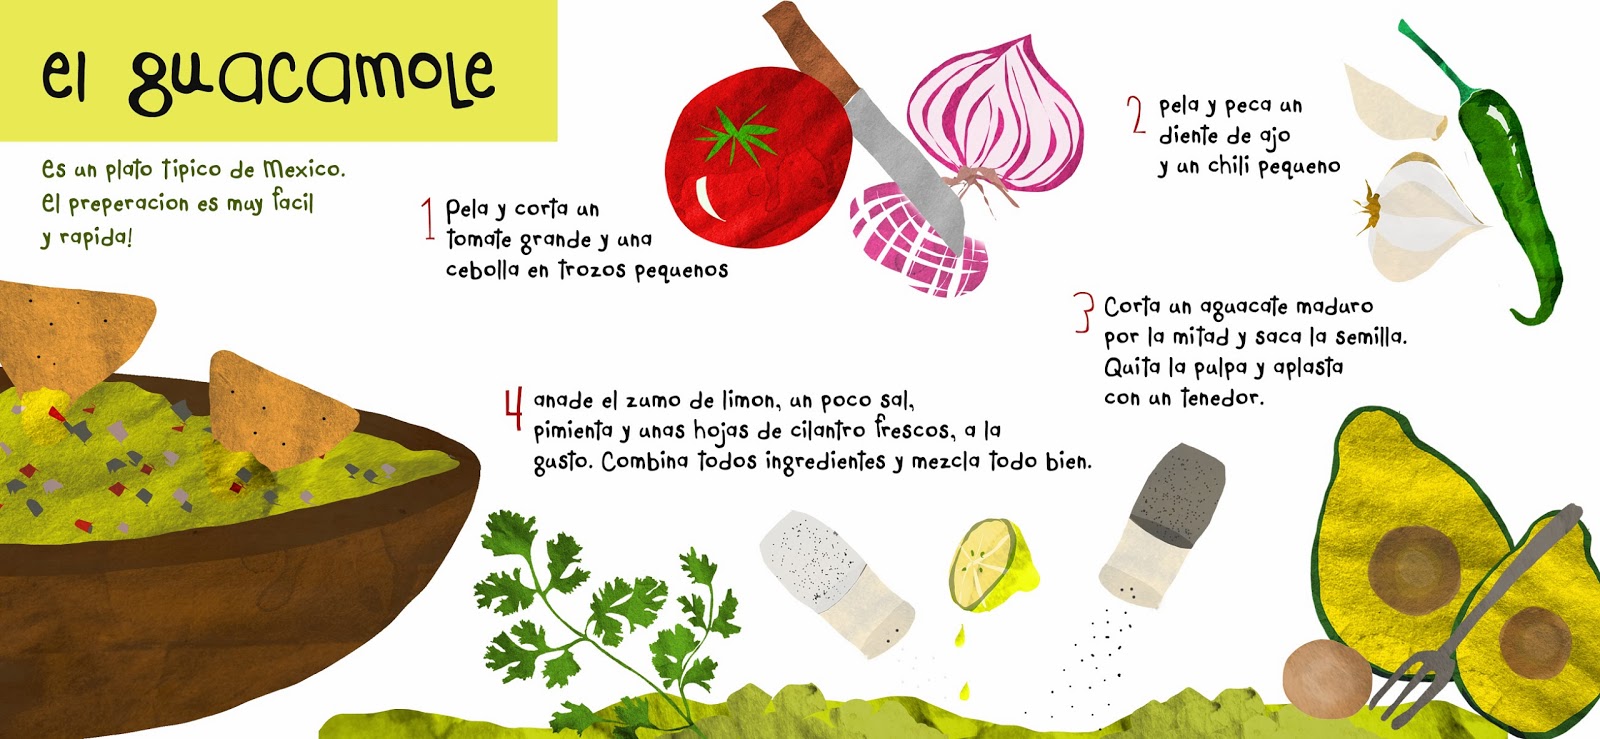 el guacamole
es un plato tipico de Mexico.
el preperacion es muy facil
y rapida!
1 Pela y corta un
tomate grande y una
cebolla en trozos pequenos
2 pela y peca un
diente de ajo
y un chili pequeno
3 Corta un aguacate maduro
por la mitad y saca la semilla.
Quita la pulpa y aplasta
con un tenedor.
4 anade el zumo de limon, un poco sal,
pimienta y unas hojas de cilantro frescos, a la
gusto. Combina todos ingredientes y mezcla todo bien.